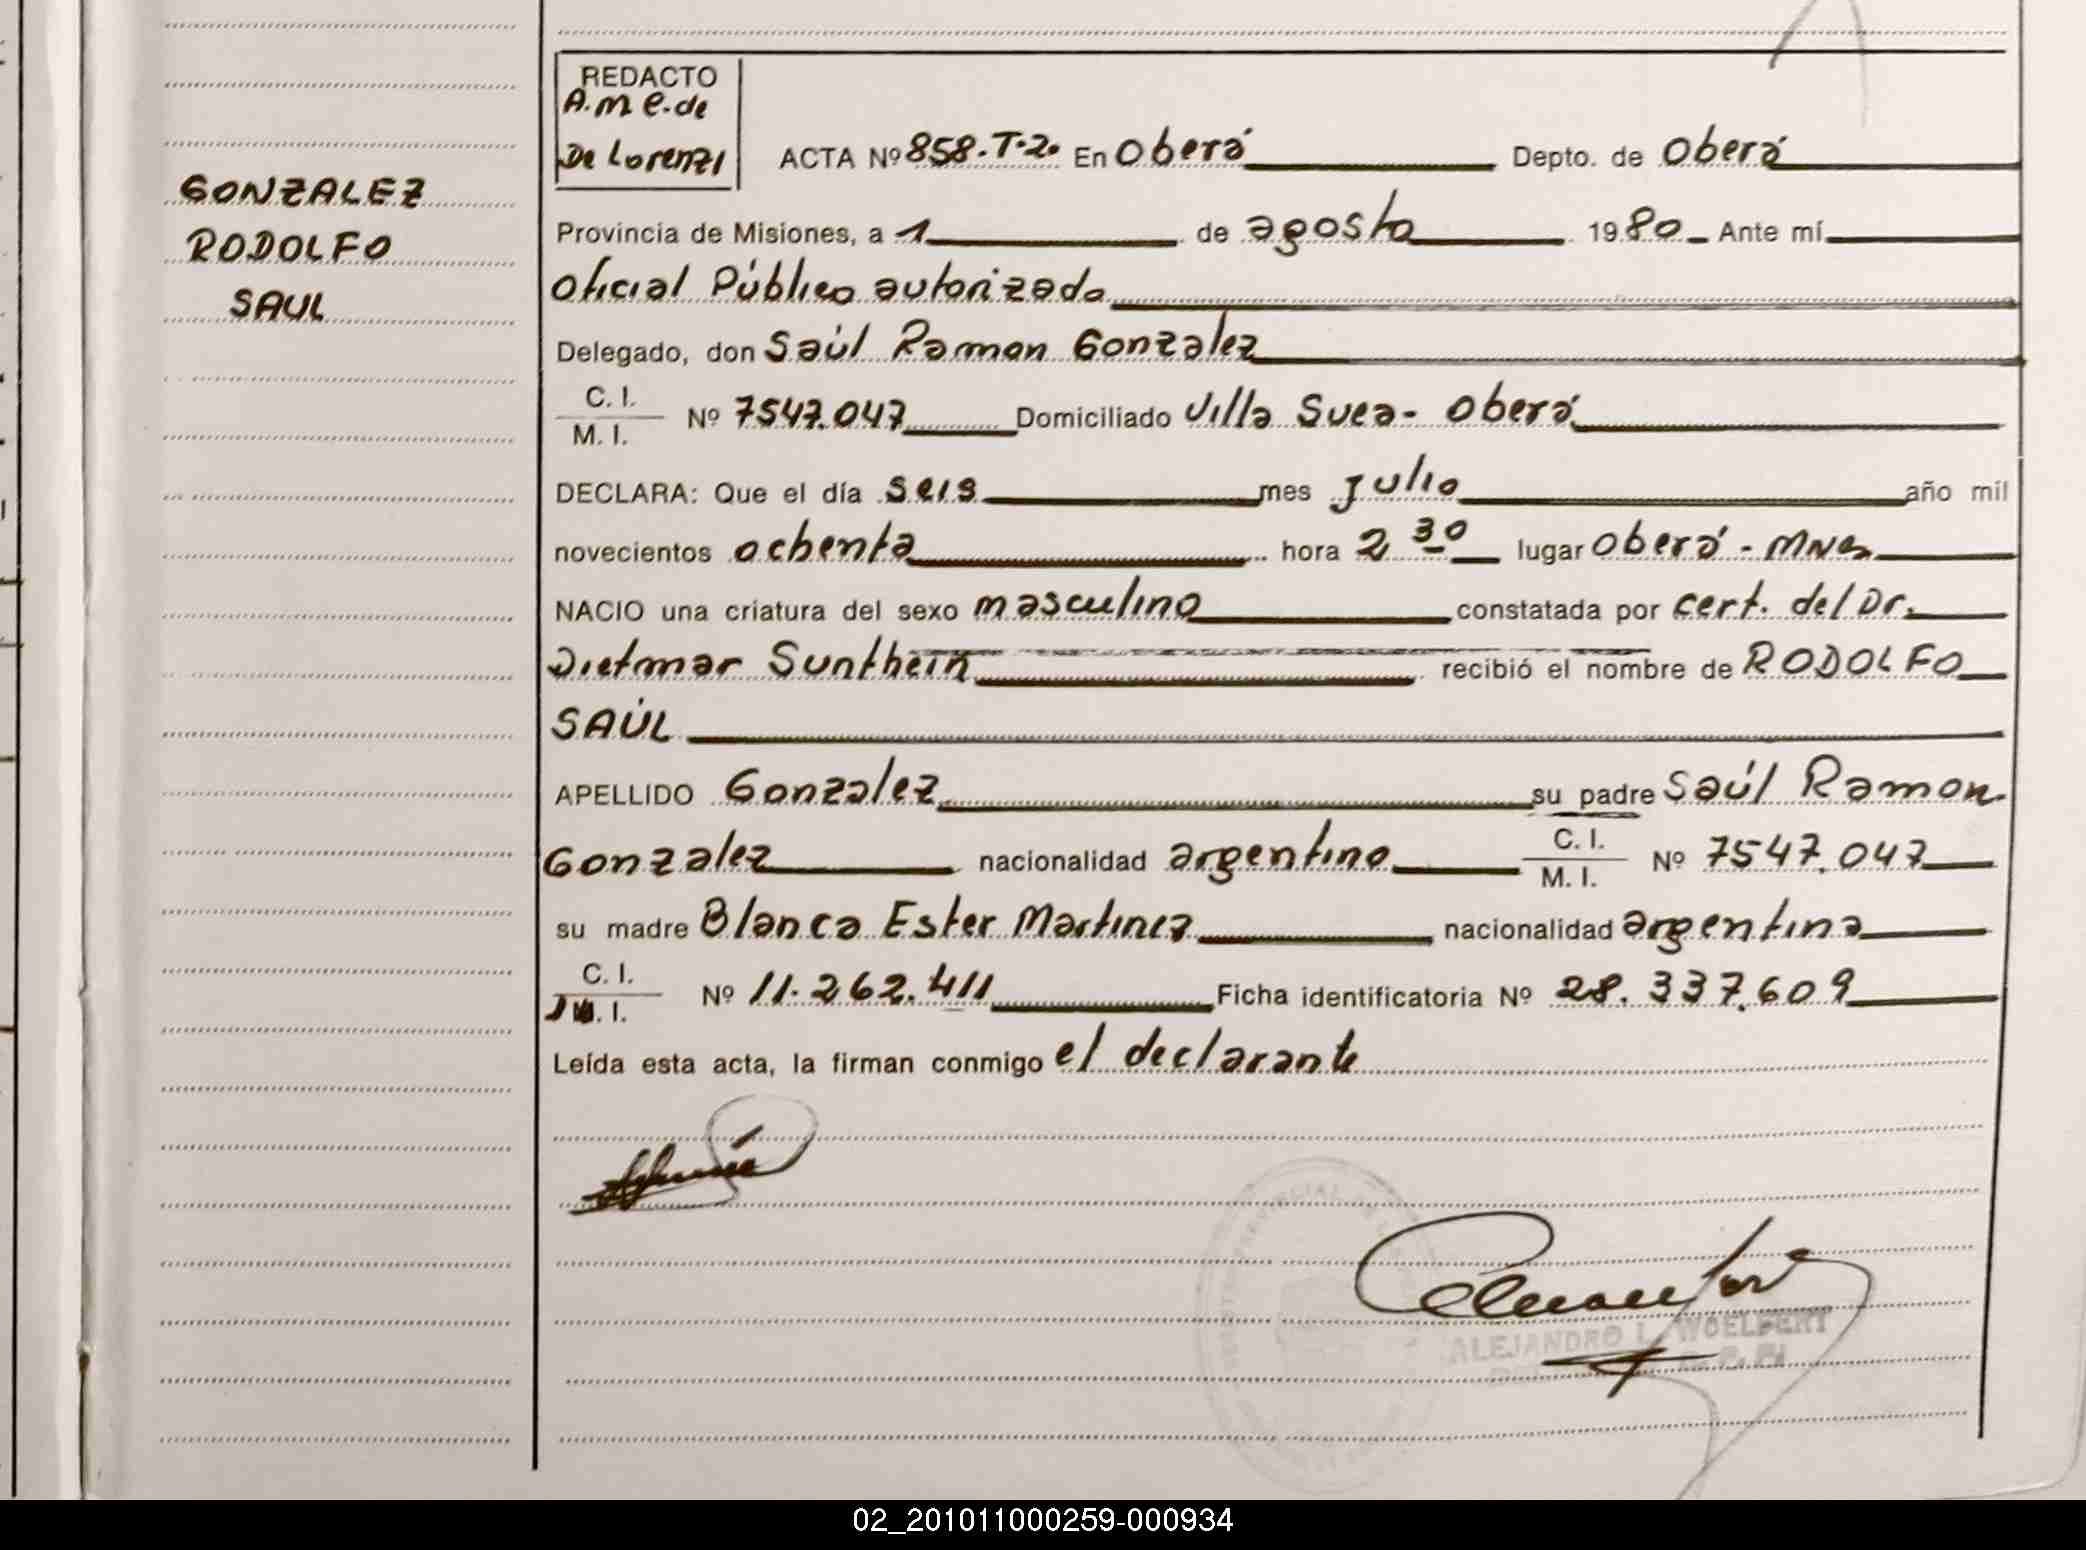 GONZALEZ
RODOLFO
SAUL
REDACTO
A.M E.de
De Lorenzi
ACTA Nº 858.T.2. En Oberá Depto. de Oberá
Provincia de Misiones, a 1 de agosto 1980 Ante mí
Oficial Público autorizado
Delegado, don Saúl Ramon Gonzalez
C. I.
M. I. Nº 7547.047 Domiciliado Villa Svea - Oberá
DECLARA: Que el día seis mes julio año mil
novecientos ochenta hora 2 30 lugar Oberá - Mnes
NACIO una criatura del sexo masculino constatada por cert. del Dr.
Dietmar Sunthein recibió el nombre de RODOLFO
SAÚL
APELLIDO Gonzalez su padre Saúl Ramon
Gonzalez nacionalidad argentino C. I. M. I. Nº 7547.047
su madre Blanca Ester Martinez nacionalidad argentina
C. I.
M. I. Nº 11.262.411 Ficha identificatoria Nº 28.337.609
Leída esta acta, la firman conmigo el declarante
ALEJANDRO L. WOELFERT
02_201011000259-000934